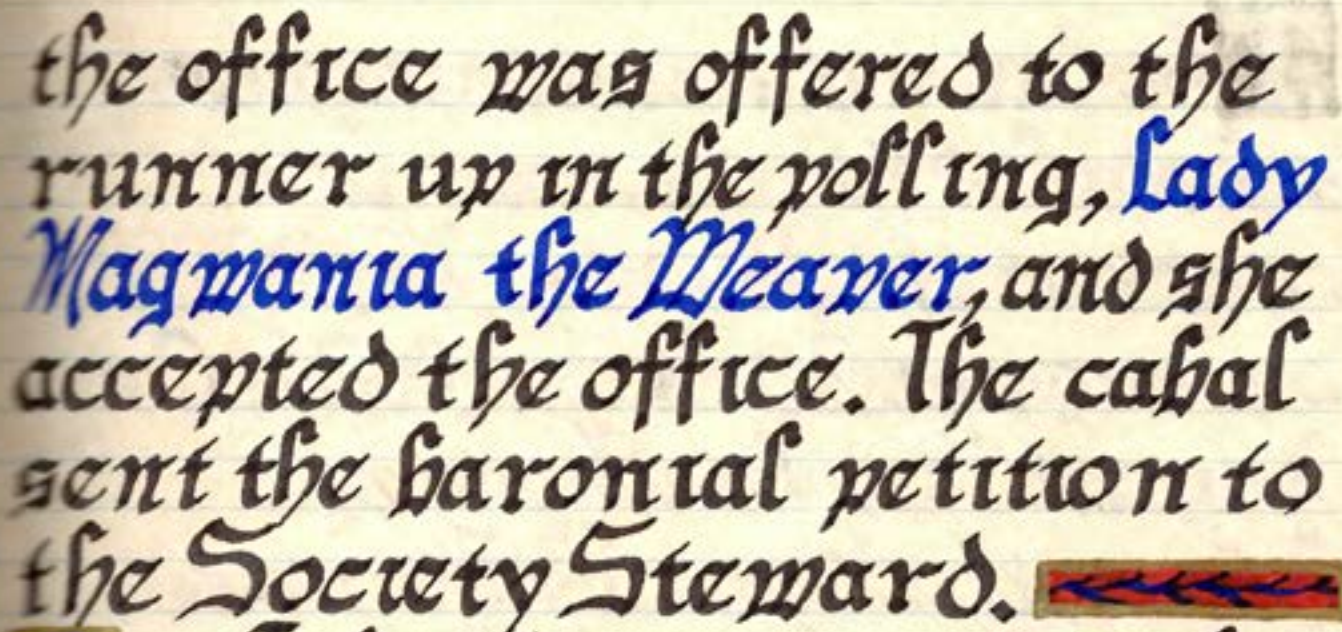 the office was offered to the
runner up in the polling, Lady
Magwania the Weaver, and she
accepted the office. The cabal
sent the baronial petition to
the Society Steward.